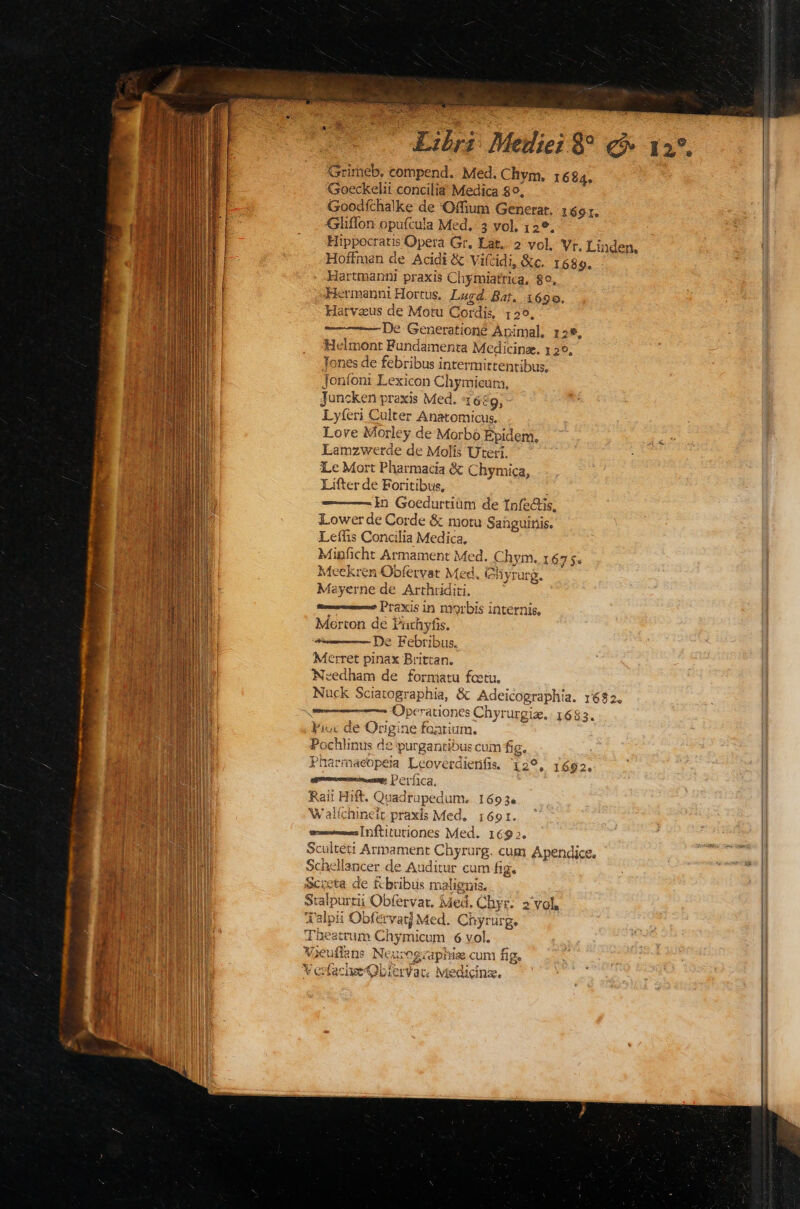 Libri Medici 8° & 12°.
Grimeb. compend. Med. Chym. 1684.
Goeckelii concilia Medica 8°.
Goodſchalke de Offium Generat. 1691.
Gliſſon opuſcula Med. 3 vol. 12°.
Hippocratis Opera Gr. Lat. 2 vol. Vr. Linden.
Hoffman de Acidi & Viſcidi, &c. 1689.
Hartmanni praxis Chymiatrica, 8°.
Hermanni Hortus. Lugd. Bat. 1690.
Harvæus de Motu Cordis, 12°.
———De Generatione Animal. 12°.
Helmont Fundamenta Medicinæ. 12°.
Jones de febribus intermittentibus.
Jonſoni Lexicon Chymicum,
Juncken praxis Med. 1689,
Lyſeri Culter Anatomicus.
Love Morley de Morbo Epidem.
Lamzwerde de Molis Uteri.
Le Mort Pharmacia & Chymica,
Liſter de Foritibus,
———In Goedurtium de Infectis,
Lower de Corde & motu Sanguinis.
Leſſis Concilia Medica,
Minſicht Armament Med. Chym. 1675.
Meekren Obſervat Med. Chyrurg.
Mayerne de Arthriditi.
———Praxis in morbis internis,
Morton de Phthyſis.
———De Febribus.
Merret pinax Brittan.
Needham de formatu fœtu.
Nuck Sciatographia, & Adeicographia. 1682.
———Operationes Chyrurgiæ. 1683.
de Origine fontium.
Pochlinus de purgantibus cum fig.
Pharmacopeia Leoverdienſis. 12°, 1692.
———Perſica.
Raii Hiſt. Quadrupedum. 1693.
Walſchineit praxis Med. 1691.
———Inſtitutiones Med. 1692.
Sculteti Armament Chyrurg. cum Apendice.
Schellancer de Auditur cum fig.
Screta de febribus malignis.
Stalpurtii Obſervat. Med. Chyr. 2 vol.
Talpii Obſervat] Med. Chyrurg.
Theatrum Chymicum 6 vol.
Vieuſſans Neurographiæ cum fig.
Obſervat. Medicinæ.